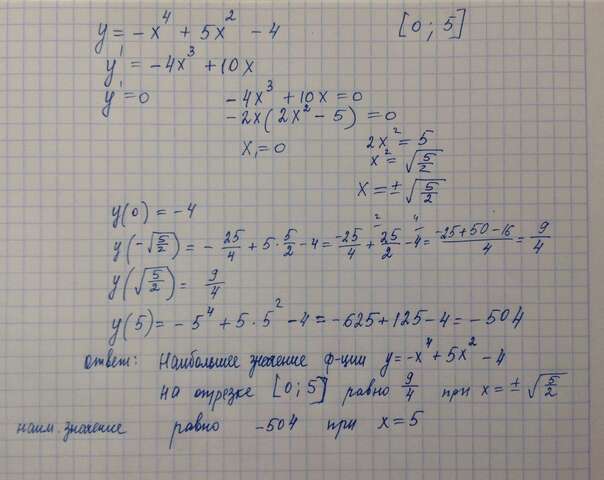 y = -x⁴ + 5x² - 4 [0; 5]
y' = -4x³ + 10x
y' = 0 -4x³ + 10x = 0
-2x(2x² - 5) = 0
x₁ = 0 2x² = 5
x² = √(5/2)
x = ±√(5/2)
y(0) = -4
y(-√(5/2)) = -25/4 + 5·5/2 - 4 = -25/4 + 25/2 - 4 = (-25+50-16)/4 = 9/4
y(√(5/2)) = 9/4
y(5) = -5⁴ + 5·5² - 4 = -625 + 125 - 4 = -504
ответ: наибольшее значение ф-ции y = -x⁴ + 5x² - 4
на отрезке [0; 5] равно 9/4 при x = ±√(5/2)
наим. значение равно -504 при x = 5